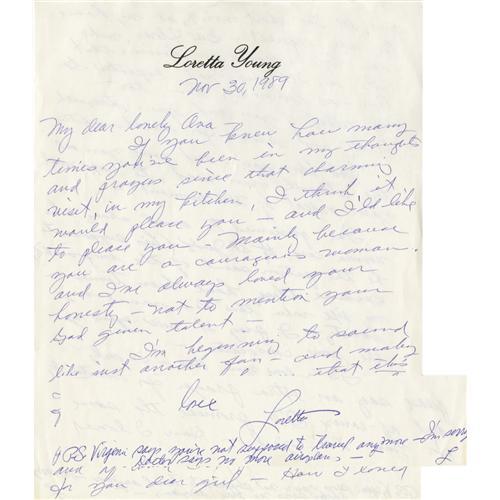 Loretta Young
Nov 30, 1989
My dear lonely Ava
If you knew how many
times you've been in my thoughts
and prayers since that charming
visit, in my kitchen, I think it
would please you - and I'd like
to please you - Mainly because
you are a courageous woman.
and I've always loved your
honesty - not to mention your
God given talent -
I'm beginning to sound
like just another fan - and maby
that this
love
Loretta
PS Virginia says you're not supposed to travel anymore - I'm sorry
Doctor says no more airplanes - L
for you dear girl - How I loved